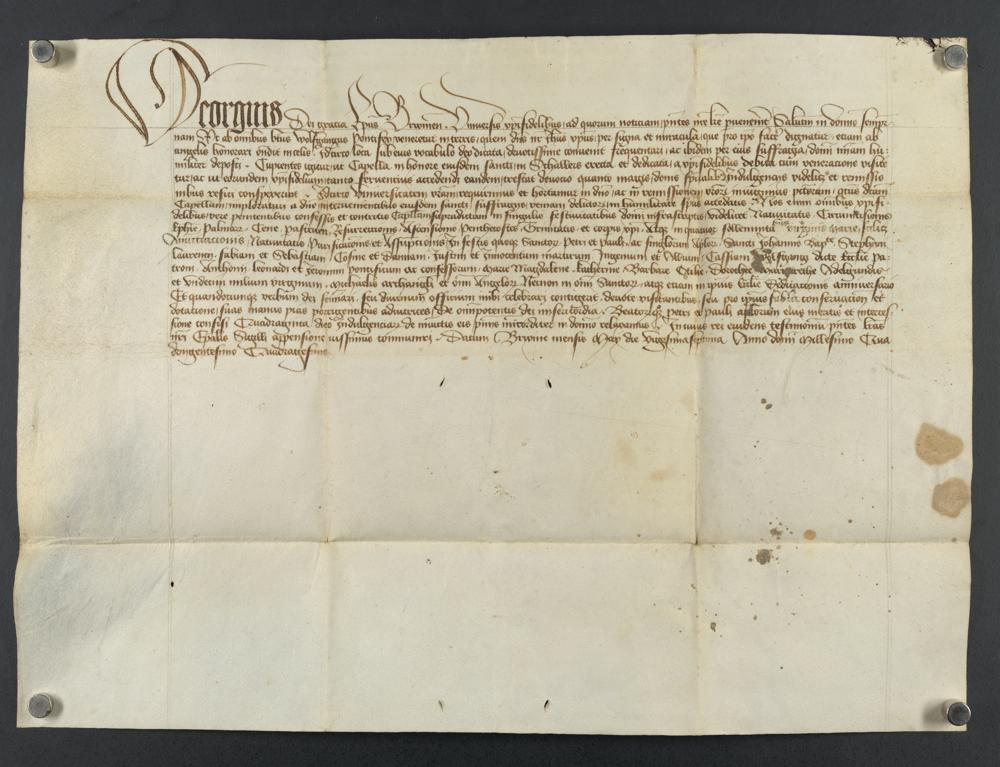 Georgius Dei gratia Epus Brixinen. Universis xpifidelibus ad quorum noticiam pntes nre lre pvenerint Salutem in domino sempi
nam Et ab omnibus btus Wolfgangus Pontifex veneretur in terris quem dns nr Ihus xpus per signa et miracula que pro ipo facere dignatur etiam ab
angelis honorari in celis loca sub eius vocabulo deo dicata devotissime convenit frequentari ac ibidem per eius suffragia domini nriam hu
militer deposci Cupientes igitur ut Capella in honore eiusdem sancti in Schalders erecta et dedicata a xpifidelibus debita cum veneracione visite
tur ac ut eorundem xpifidelium tanto ferventius accedendi eandem crescat devocio quanto magis donis spualibus Indulgenciis videlicet et remissio
nibus refici conspexerint Universitatem vram requirimus et hortamur in dno ac in remissionem vrorum iniungimus pctorum qtus dictam
Capellam imploraturi a dno intervenientibus eiusdem sancti suffragiis veniam delictorum in humilitate spus accedatis Nos enim omnibus xpifi
delibus vere penitentibus confessis et contritis Capellam supradictam in singulis festivitatibus domini infrascriptis videlicet Nativitatis Circumcisionis
Ephie Palmarum Cene pasceven Resurrectionis Ascensionis Penthecostes Trinitatis et corpis xpi Atque in quatuor sollemnitatibus virginis marie scilicet
Annuntiacionis Nativitatis Purificacionis et Assumptionis In festis quoque Sanctorum Petri et pauli ac singulorum Aplorum Sancti Johannis Bapte Stephani
Laurency fabiani et Sebastiani Cosme et Damiani Justini et Innocentum martirum Ingenuini et Albuini Cassiani Wolfgangi dicte Ecclie pa
troni Anthonii leonardi et Jeronimi pontificum ac confessorum marie Magdalene katherine Barbare Dorothee Margarethe Adelgundis
et Undecim milium virginum michaelis archangli et omnium Angelorum Necnon in omnium Sanctorum atque etiam in ipius Ecclie Dedicacionis anniversario
Et quandocunque verbum dei seminari seu divinum officium inibi celebrari contigerit devote visitantibus seu pro ipius fabrica conservacion et
dotacione suas manus pias porrigentibus adiutrices De omnipotentis dei misericordia Beatorum petri et pauli aplorum eius meritis et interces
sione confisi Quadraginta dies indulgenciarum de iniunctis eis pniis misericorditer in domino relaxamus In cuius rei evidens testimonium pntes lras
nri Epalis Sigilli appensione iussimus communiri Datum Brixine mensis May die vigesimaseptima Anno domini Millesimo Qua
dringentesimo Quadragesimo